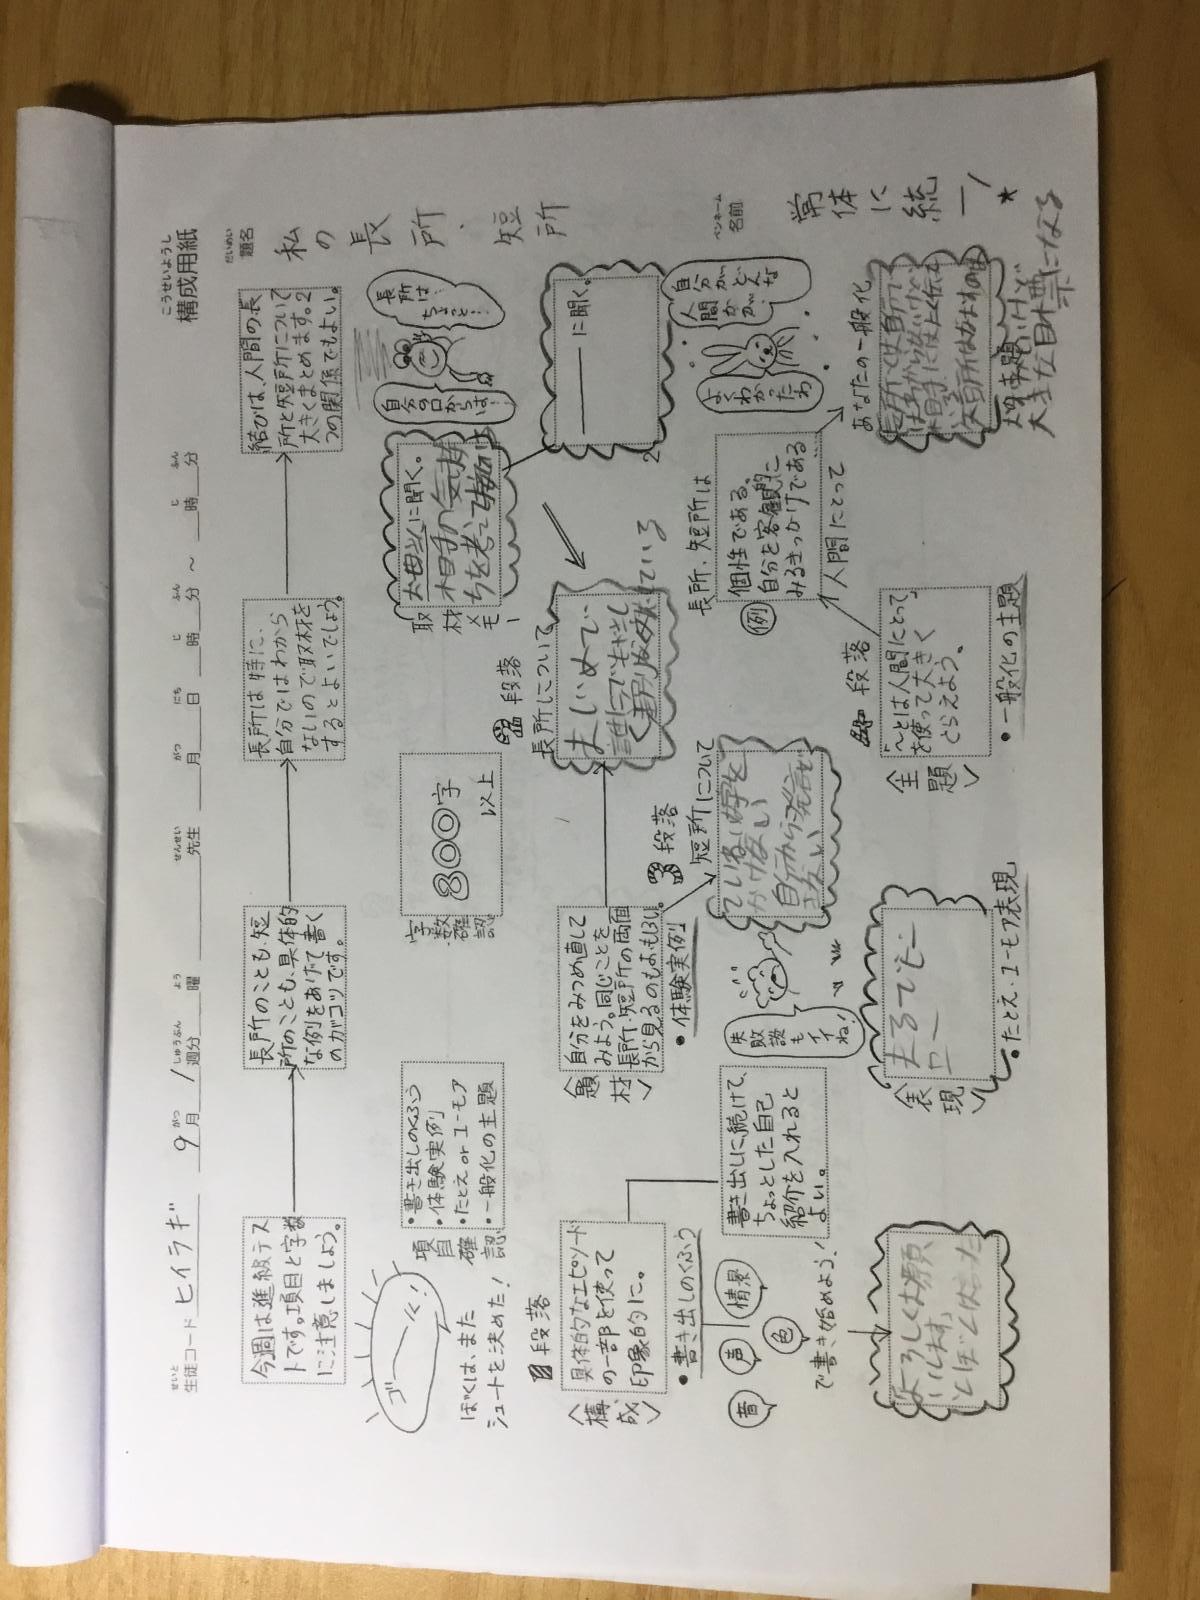 こうせいようし
構成用紙
せいと
生徒コード ヒイラギ 9月 1週分 曜 先生 月 日 時 分 ～ 時 分
だいめい
題名
私の長所、短所
ペンネーム
名前
常体に統一
今週は進級テス
トです。項目と字数
に注意しましょう。
長所のことも、短
所のことも、具体的
な例をあげて書く
のがコツです。
長所は特に、
自分ではわから
ないので取材を
するとよいでしょう。
結びは、人間の長
所と短所について
大きくまとめます。2
つの関係でもよい。
ゴール!
ぼくは、また
シュートを決めた!
項目確認
・書き出しのくふう
・体験実例
・たとえ or ユーモア
・一般化の主題
字数確認
800字
以上
取材メモ
お母さんに聞く。
相手の気持
ちを考えて
自分の口からは…
長所は
ちょっと…
――に聞く。
2
段落
〈構成〉
具体的なエピソード
の一部を使って
印象的に。
・書き出しのくふう
音
声
色
情景
で書き始めよう!
よろしくお願
いします。
とぼくは言った
書き出しに続けて、
ちょっとした自己
紹介を入れると
よい。
〈題材〉
自分をみつめ直して
みよう。同じことを
長所・短所の両面
から見るのもおもしろい。
・体験実例
失敗談もイイね!
段落
長所について
まじめで
誰にでもやさしく
段落
短所について
自分から発言でき
ない
〈表現〉
まるでモニター
・たとえ・ユーモア表現
長所・短所は
例
個性である。
自分を客観的に
みるきっかけである
人間にとって
よくわかったわ
自分がどんな
人間かが…
段落
〈主題〉
「～とは人間にとって」
を使って大きく
とらえよう。
・一般化の主題
あなたの一般化
★
大きな目標になる